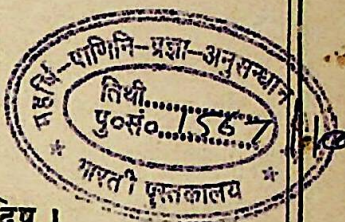 महर्षि-पाणिनि-प्रज्ञा-अनुसन्धान
तिथी..............
पु०सं० 1567
* भारती पुस्तकालय *